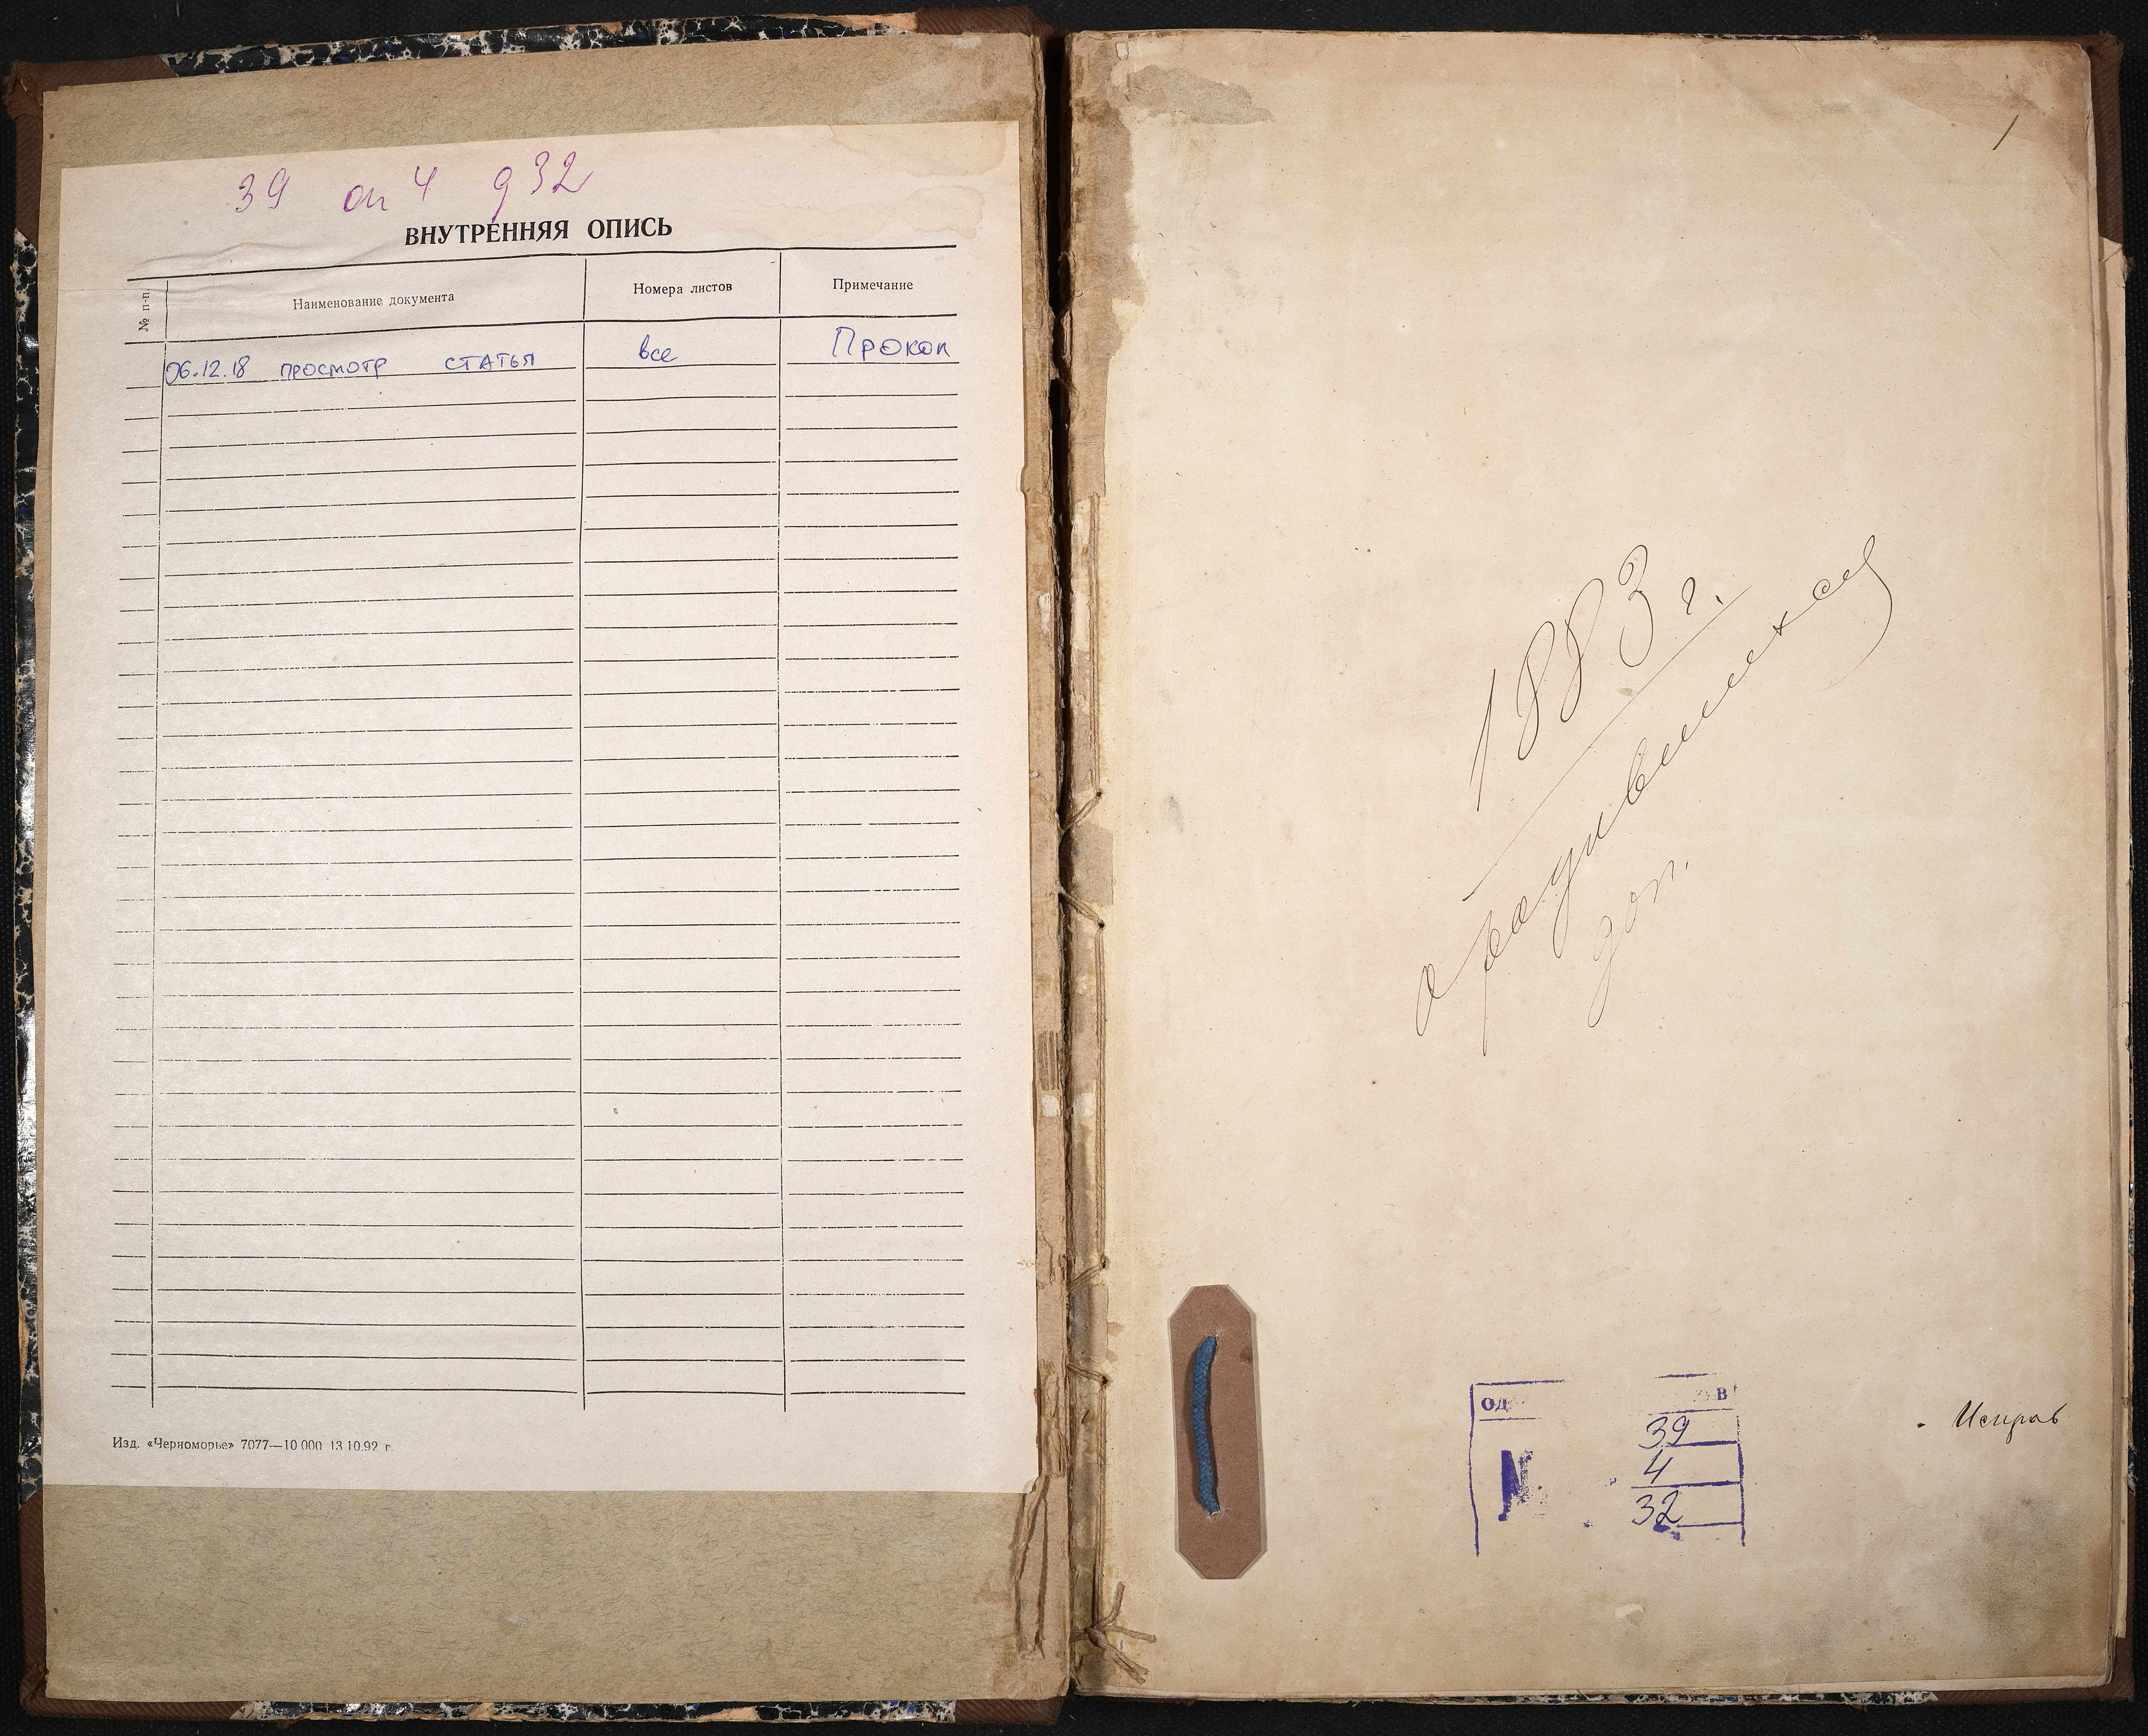 39 оп 4 д 32
ВНУТРЕННЯЯ ОПИСЬ
№ п-п. Наименование документа Номера листов Примечание
06.12.18 просмотр статья все Прокоп
Изд. «Черноморье» 7077—10 000 13.10.92 г.
1
1883 г.
доп.
39
N 4
32